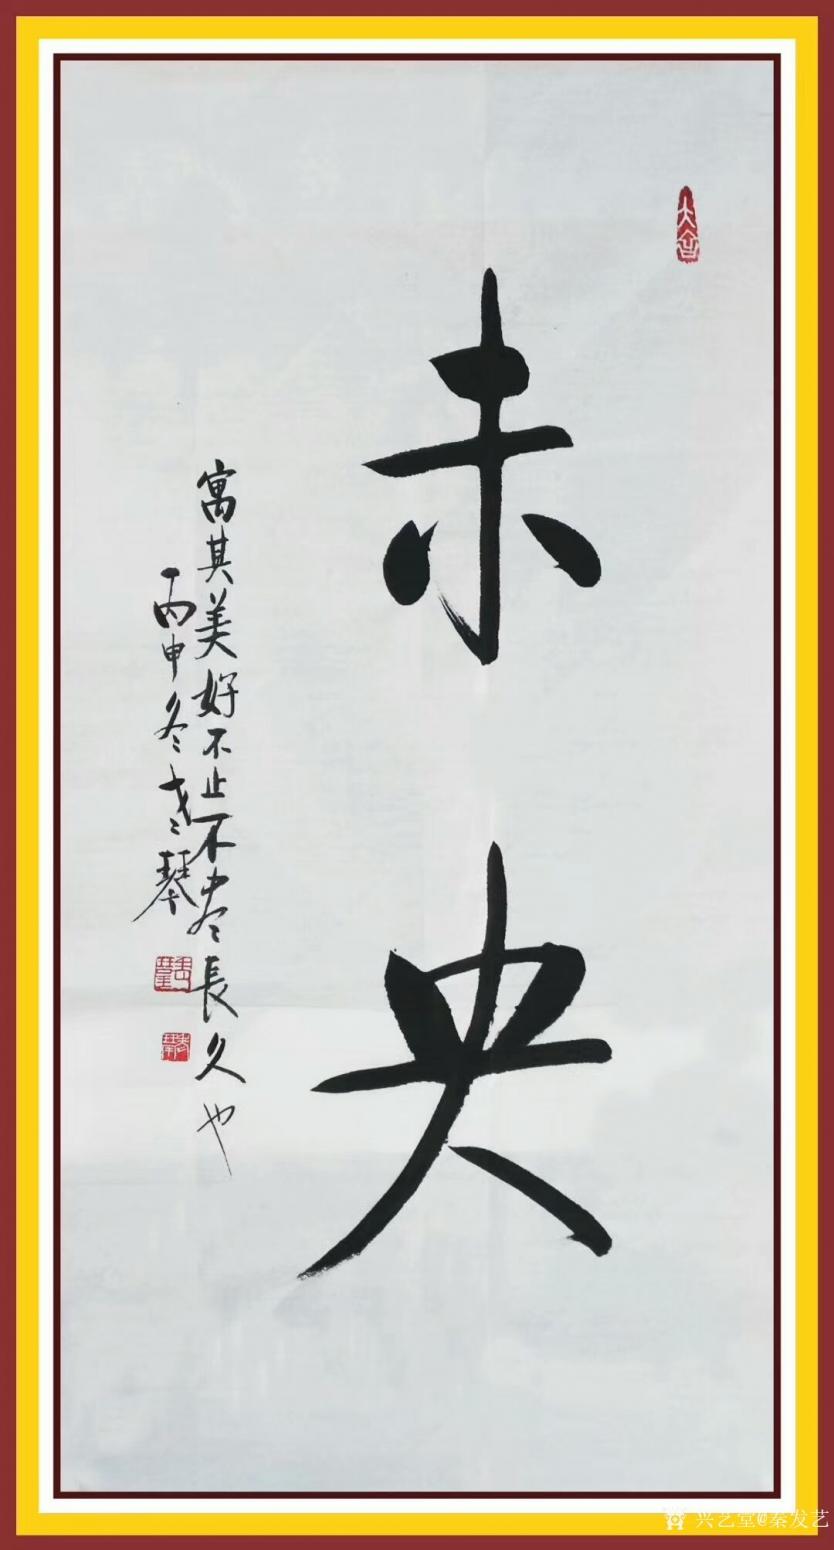 未央
寓其美好不止不尽長久也
丙申冬 琴
兴艺堂@秦发艺